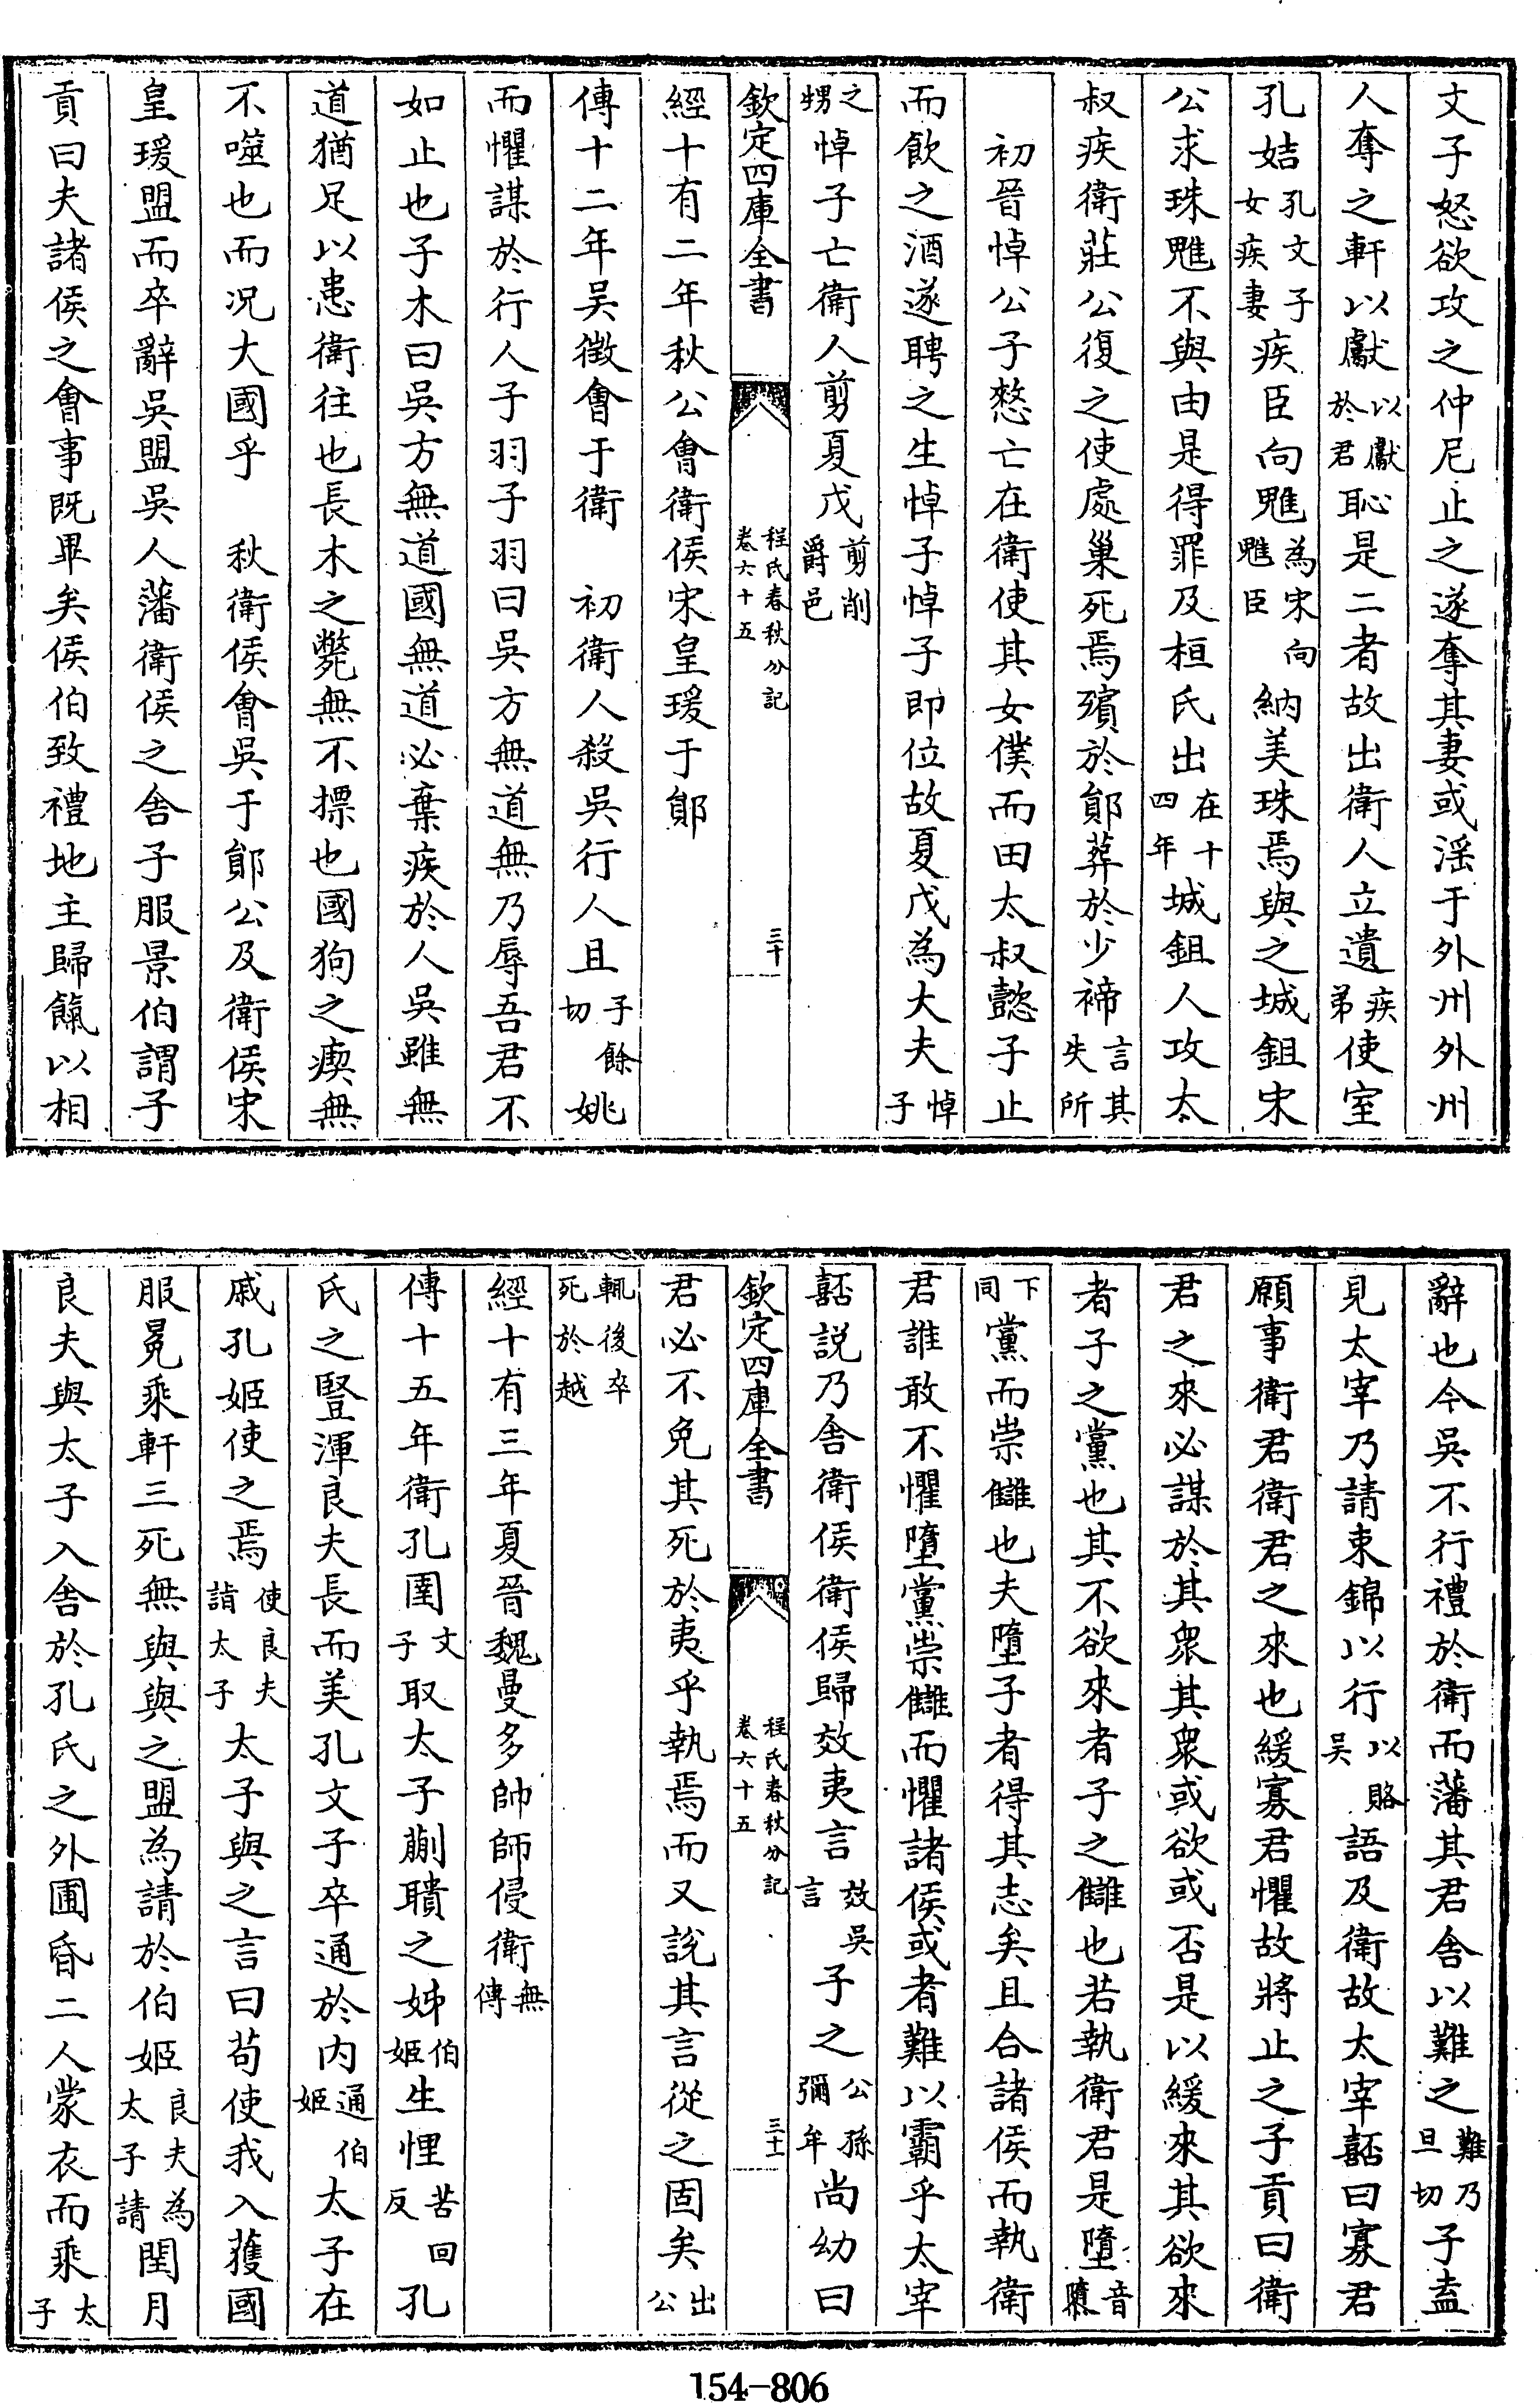 文子怒欲攻之仲尼止之遂奪其妻或淫于外州外州
人奪之軒以獻以獻於君恥是二者故出衛人立遺疾弟使室
孔姞孔文子女疾妻疾臣向魋為宋向魋臣納美珠焉與之城鉏宋
公求珠魋不與由是得罪及桓氏出在十四年城鉏人攻太
叔疾衛莊公復之使處巢死焉殯於鄖葬於少禘言其失所
初晉悼公子憖亡在衛使其女僕而田太叔懿子止
而飲之酒遂聘之生悼子悼子即位故夏戊為大夫悼子
之甥悼子亡衛人剪夏戊剪削爵邑
欽定四庫全書
程氏春秋分記
卷六十五
三十
經十有二年秋公會衛侯宋皇瑗于鄖
傳十二年吳徵會于衛　初衛人殺吳行人且子餘切姚
而懼謀於行人子羽子羽曰吳方無道無乃辱吾君不
如止也子木曰吳方無道國無道必棄疾於人吳雖無
道猶足以患衛往也長木之斃無不摽也國狗之瘈無
不噬也而况大國乎　秋衛侯會吳于鄖公及衛侯宋
皇瑗盟而卒辭吳盟吳人藩衛侯之舍子服景伯謂子
貢曰夫諸侯之會事既畢矣侯伯致禮地主歸餼以相
辭也今吳不行禮於衛而藩其君舍以難之難乃旦切子盍
見太宰乃請束錦以行以賂吳語及衛故太宰嚭曰寡君
願事衛君衛君之來也緩寡君懼故將止之子貢曰衛
君之來必謀於其衆其衆或欲或否是以緩來其欲來
者子之黨也其不欲來者子之讎也若執衛君是墮音隳
下同黨而崇讎也夫墮子者得其志矣且合諸侯而執衛
君誰敢不懼墮黨崇讎而懼諸侯或者難以霸乎太宰
嚭説乃舍衛侯衛侯歸效夷言效吳言子之公孫彌牟尚幼曰
欽定四庫全書
程氏春秋分記
卷六十五
三十一
君必不免其死於夷乎執焉而又說其言從之固矣出公
輒後卒死於越
經十有三年夏晉魏曼多帥師侵衛無傳
傳十五年衛孔圉文子取太子蒯聵之姊伯姬生悝苦回反孔
氏之豎渾良夫長而美孔文子卒通於內通伯姬太子在
戚孔姬使之焉使良夫詣太子太子與之言曰苟使我入獲國
服冕乘軒三死無與與之盟為請於伯姬良夫為太子請閏月
良夫與太子入舍於孔氏之外圃昏二人蒙衣而乘太子
154-806